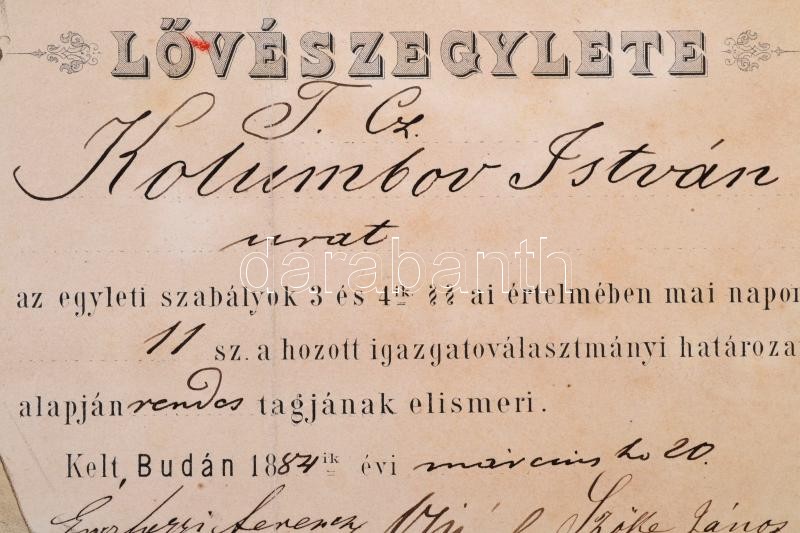 LŐVÉSZEGYLETE
T. Cz.
Kolumbov István
urat
az egyleti szabályok 3 és 4ik §§ ai értelmében mai napon
11 sz. a hozott igazgatoválasztmányi határoza
alapján rendes tagjának elismeri.
Kelt, Budán 1884ik évi március ho 20.
Ferencz Szőke János
darabanth